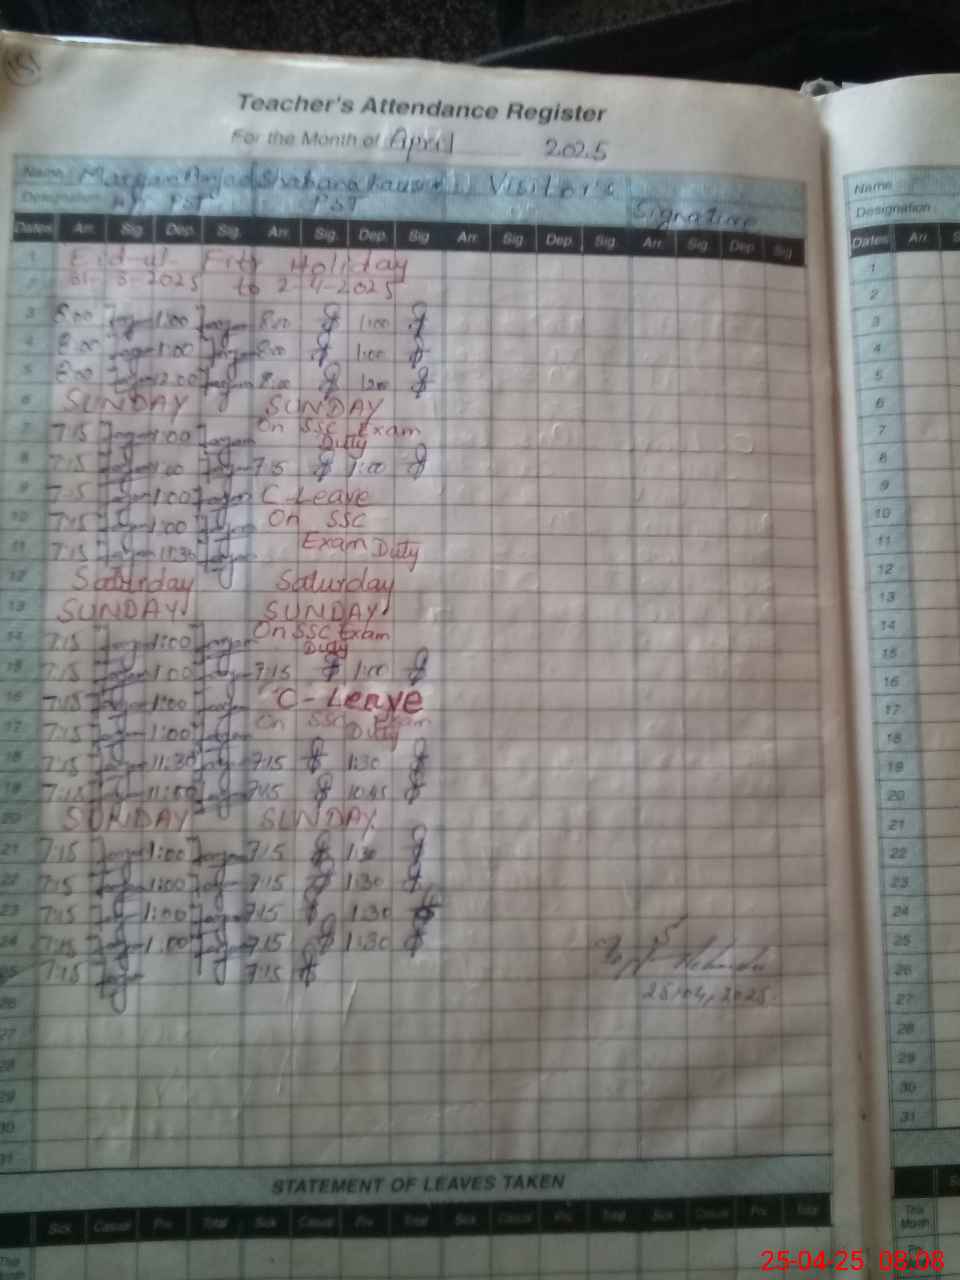 Teacher's Attendance Register
For the Month of April 2025
Name Visitor's
Designation PST PST Signature
Dates Arr. Sig. Dep. Sig. Arr. Sig. Dep. Sig Arr. Sig. Dep. Sig. Arr. Sig. Dep Sig
1 Eid-ul-Fitr Holiday
2 31-3-2025 to 2-4-2025
3 8:00 1:00 8:00 1:00
4 8:00 1:00 8:00 1:00
5 8:00 12:00 8:00 12:00
6 SUNDAY SUNDAY
7 7:15 1:00 On SSC Exam Duty
8 7:15 1:00 7:15 1:00
9 7:15 1:00 C-Leave
10 7:15 1:00 On SSC
11 7:15 11:30 Exam Duty
12 Saturday Saturday
13 SUNDAY SUNDAY
14 7:15 1:00 On SSC Exam Duty
15 7:15 1:00 7:15 1:00
16 7:15 1:00 C-Leave
17 7:15 1:00 On SSC Exam Duty
18 7:15 11:30 7:15 1:30
19 7:15 7:15 10:45
20 SUNDAY SUNDAY
21 7:15 1:00 7:15 1:30
22 7:15 1:00 7:15 1:30
23 7:15 1:00 7:15 1:30
24 7:15 1:00 7:15 1:30
25 7:15 7:15
25/04/2025
26
27
28
29
30
31
STATEMENT OF LEAVES TAKEN
Sick Casual Prv. Total Sick Casual Prv. Total Sick Casual Prv. Total Sick Casual Prv. Total
This Month
Name
Designation
Dates Arr.
1
2
3
4
5
6
7
8
9
10
11
12
13
14
15
16
17
18
19
20
21
22
23
24
25
26
27
28
29
30
31
This Month
25-04-25 08:08